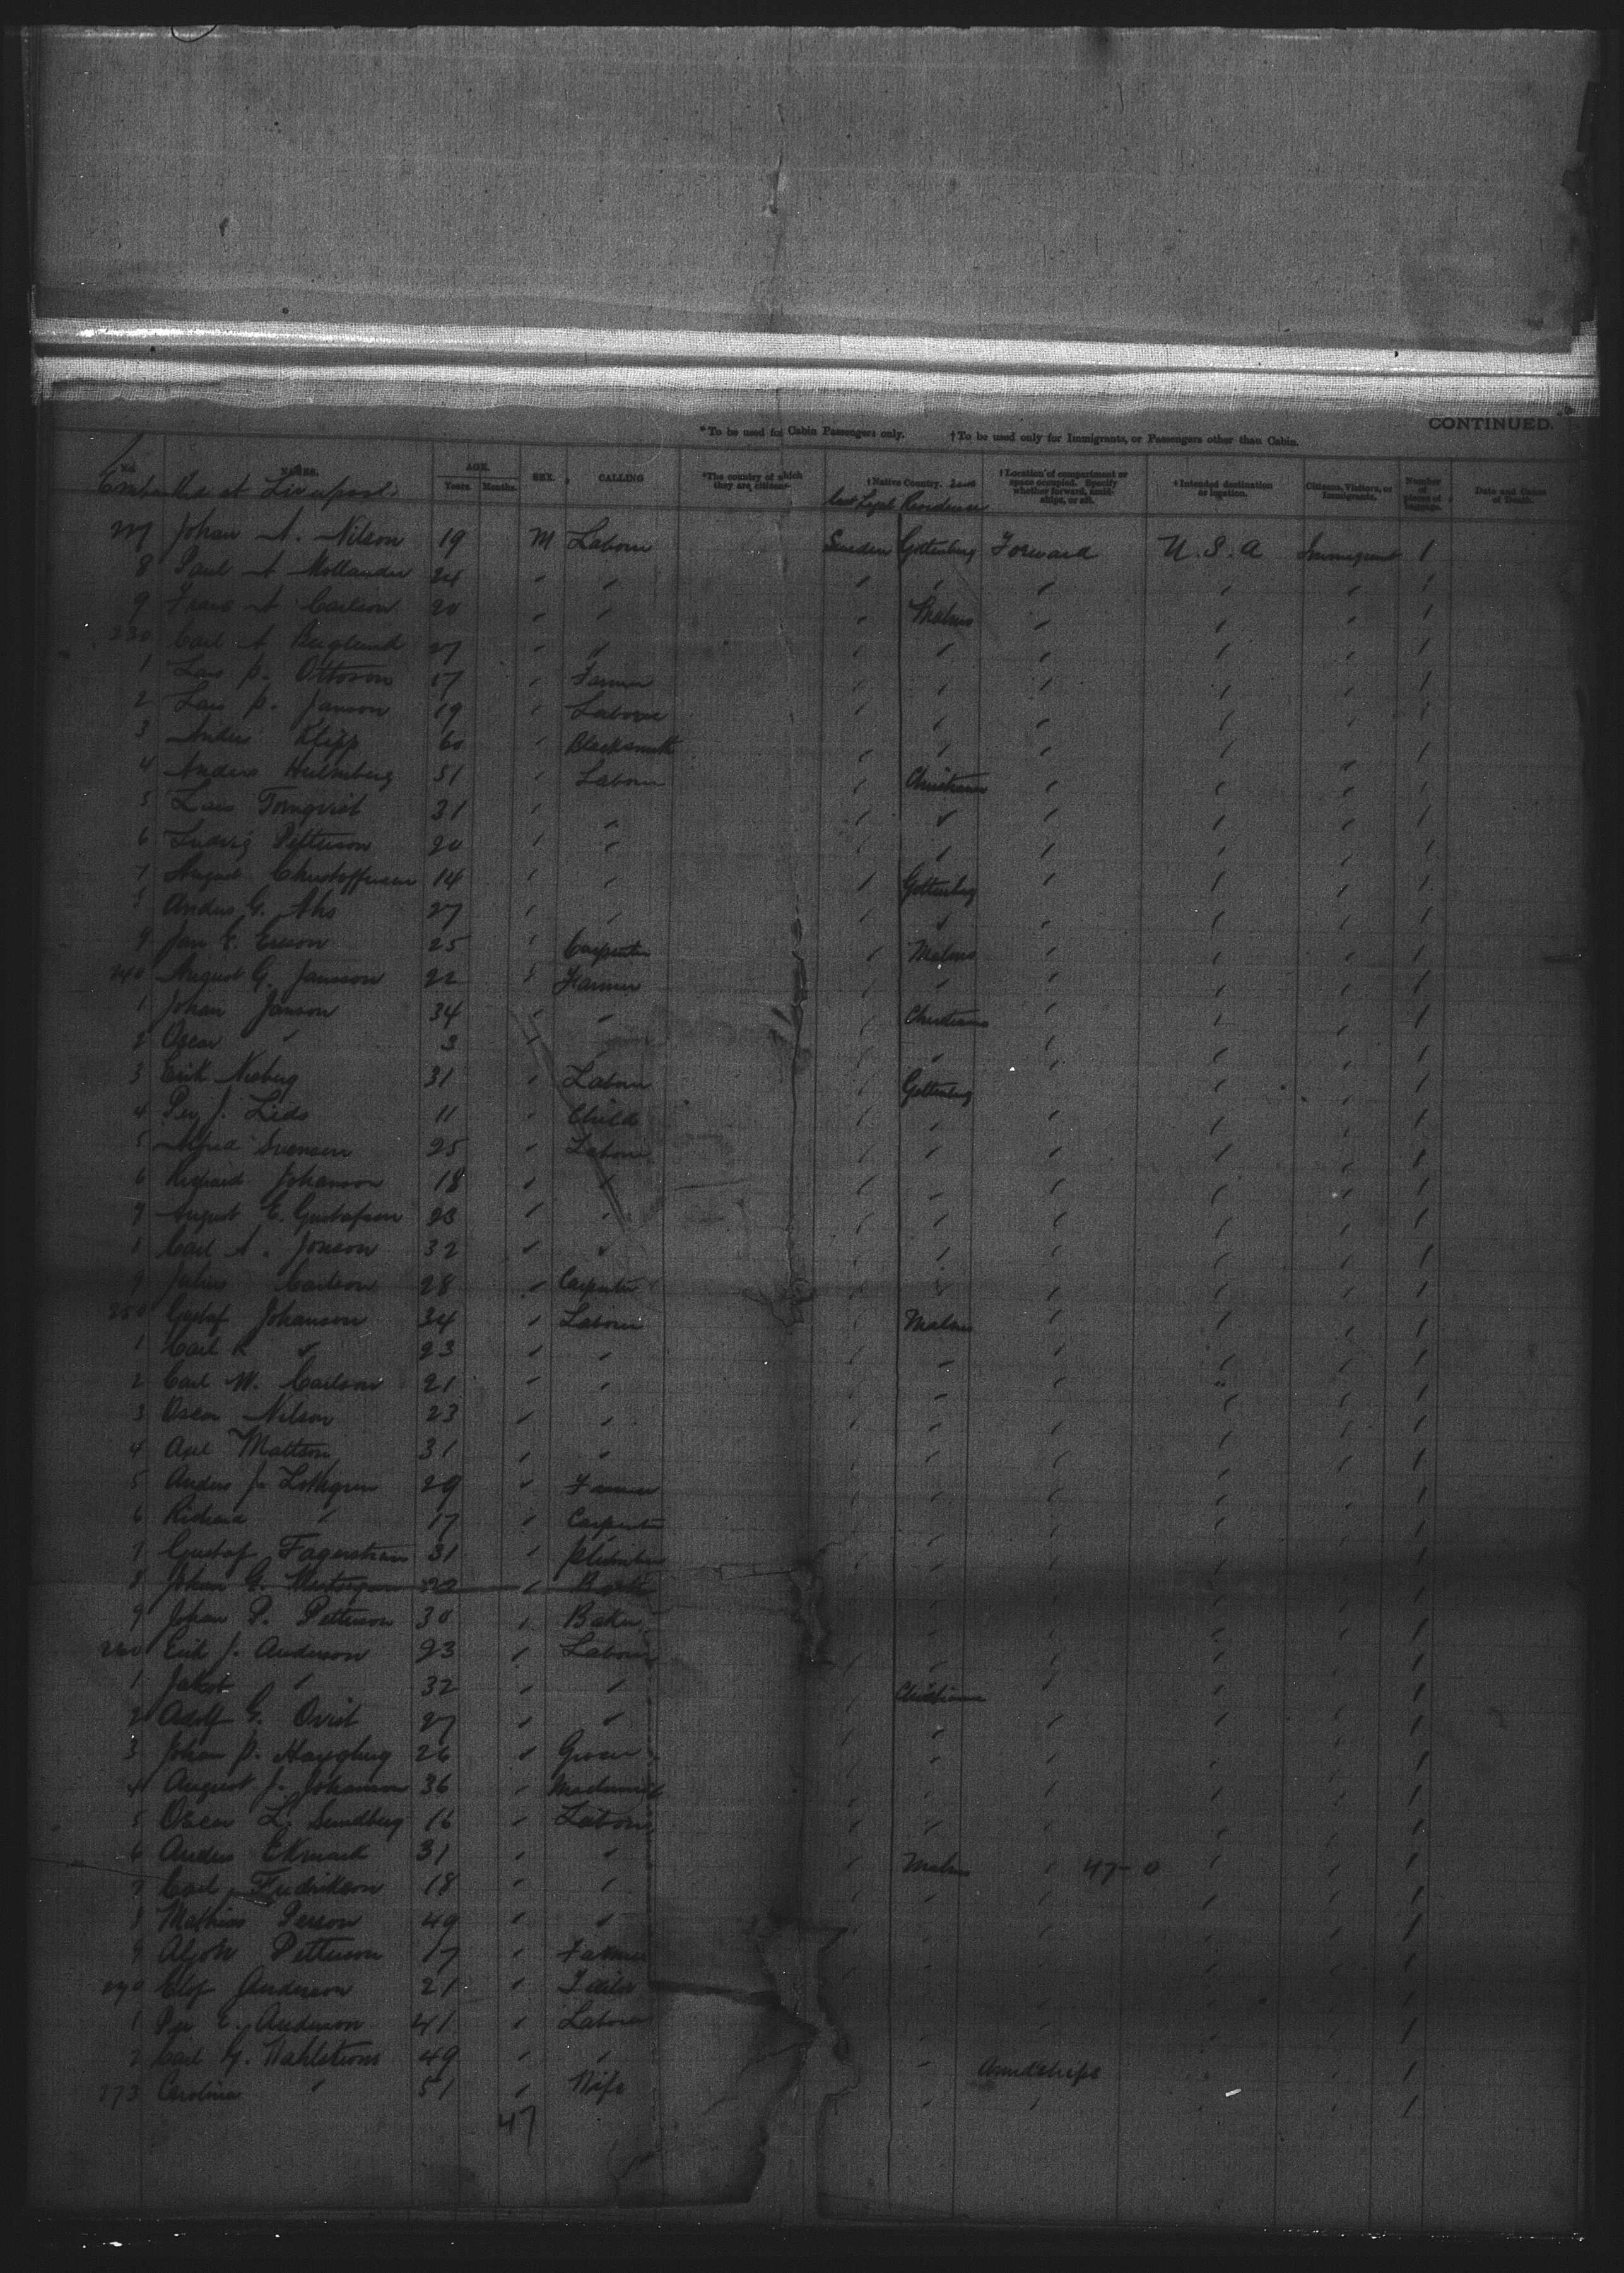 CONTINUED.
*To be used for Cabin Passengers only. †To be used only for Immigrants, or Passengers other than Cabin.
No. NAMES. AGE. Years. Months. SEX. CALLING *The country of which they are citizens. †Native Country. †Location of compartment or space occupied. Specify whether forward, amidships, or aft. †Intended destination or location. Citizens, Visitors, or Immigrants. Number of pieces of baggage. Date and Cause of Death.
Embarked at Liverpool. Last Legal Residence
227 Johan A. Nilson 19 M Laborer Sweden Gottenburg Forward U.S.A Immigrant 1
8 Paul A Mollander 24 " " " " " " " 1
9 Frans A Carlson 20 " " " Malmo " " " 1
230 Carl A Berglund 27 " " " " " " " 1
1 Lars P. Ottoson 17 " Farmer " " " " " 1
2 Lars P. Janson 19 " Laborer " " " " " 1
3 Anders Klipp 60 " Blacksmith " " " " " 1
4 Anders Holmberg 51 " Laborer " Christiania " " " 1
5 Lars Tornqvist 31 " " " " " " " 1
6 Ludvig Petterson 20 " " " " " " " 1
7 August Christofferson 14 " " " Gottenburg " " " 1
8 Anders G. Ahs 27 " " " " " " " 1
9 Jan E. Ericson 25 " Carpenter " Malmo " " " 1
240 August G. Jansson 22 " Farmer " " " " " 1
1 Johan Janson 34 " " " Christiania " " " 1
2 Oscar " 3 " " " " " " 1
3 Erik 31 " Laborer " Gottenburg " " " 1
4 Per J. Lids 11 " Child " " " " " 1
5 Alfred Svenson 25 " Laborer " " " " " 1
6 Richard Johanson 18 " " " " " " " 1
7 August E. Gustafson 23 " " " " " " " 1
8 Carl A. Jonson 32 " " " " " " " 1
9 Julius Carlson 28 " Carpenter " " " " " 1
250 Gustaf Johanson 34 " Laborer " Malmo " " " 1
1 Carl R " 23 " " " " " " " 1
2 Carl W. Carlson 21 " " " " " " " 1
3 Oscar Nilson 23 " " " " " " " 1
4 Axel Mattson 31 " " " " " " " 1
5 Anders J. Lothgren 29 " Farmer " " " " " 1
6 Richard " 17 " Carpenter " " " " " 1
7 Gustaf Fagerstrom 31 " " " " " " 1
8 Johan G. 22 "
9 Johan P. Petterson 30 " Baker " " " " " 1
260 Erik J. Anderson 23 " Laborer " " " " " 1
1 Jakob " 32 " " " Christiania " " " 1
2 Adolf G. Qvist 27 " " " " " " " 1
3 Johan P. 26 " Grocer " " " " " 1
4 August J. Johanson 36 " Machinist " " " " " 1
5 Oscar L. Sundberg 16 " Laborer " " " " " 1
6 Anders Ekmark 31 " " " Malmo " 47-0 " " 1
7 Carl Fredrikson 18 " " " " " " " 1
8 Mathias Person 49 " " " " " " " 1
9 Petterson 17 " Farmer " " " " " 1
270 Elof Anderson 21 " Tailor " " " " " 1
1 Per E. Anderson 41 " Laborer " " " " " 1
2 Carl G. Wahlstrom 49 " " " Amidships " " 1
273 Carolina " 51 " Wife " " " " 1
47